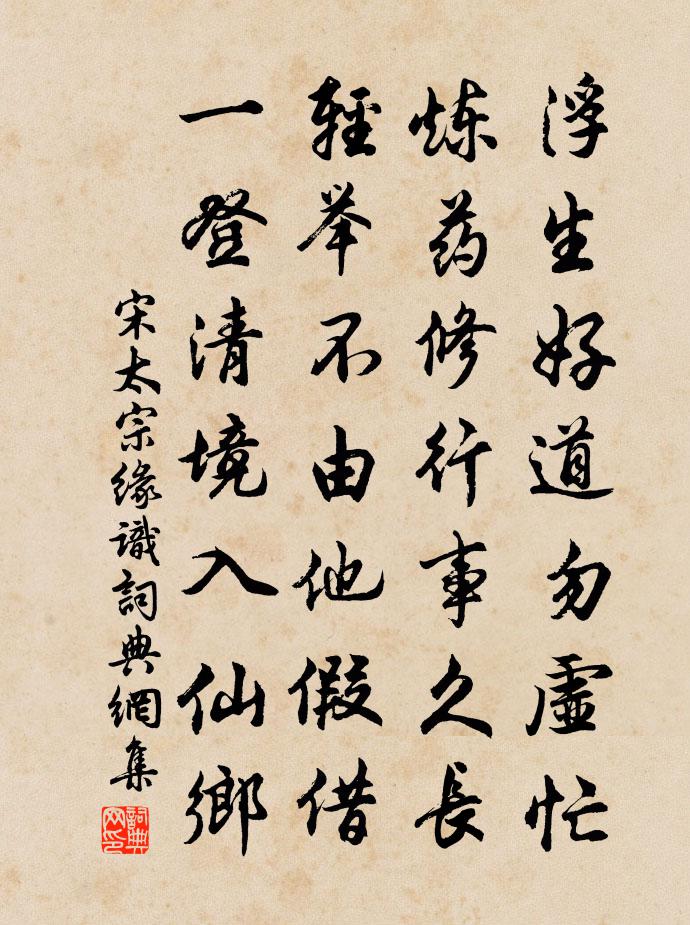 浮生好道勿虛忙
炼药修行事久長
輕举不由他假借
一登清境入仙鄉
宋太宗缘識詞典網集
詞典网印